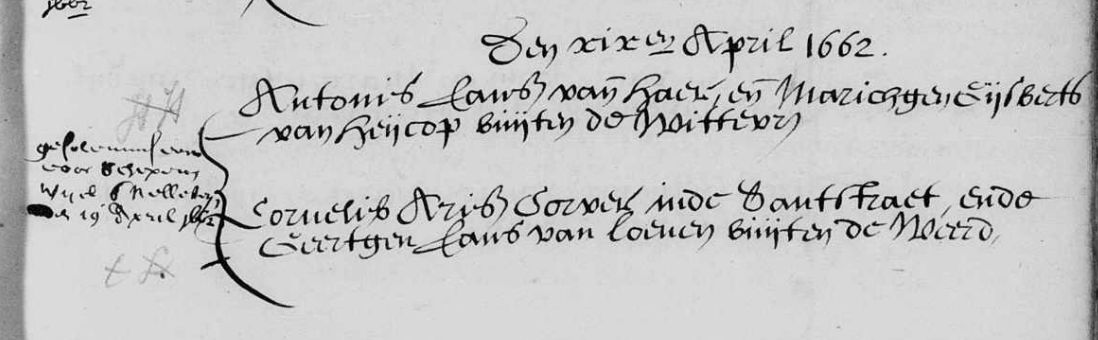 1662
Den xixen April 1662.
Antonis Lauwsz van Haer, en Marichgen Gijsberts
van Heijcop buijten de Wittevr
gesolemniseert
voor Schepens
den 19 April 1662
Cornelis Arisz Corver inde Santstraet, ende
Geertgen Lauws van Loenen buijten de Weerd,